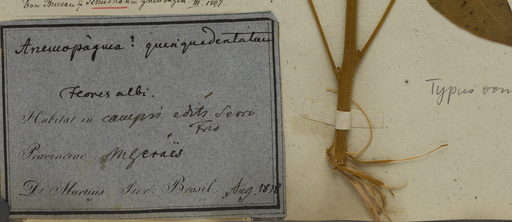 Bureau & Schumann III. 1897
Anemopægma? quinquedentatum
Flores albi.
Habitat in campis editis Serro
Frio
Provinciae M. Geraës
Dr Martius Iter Brasil. Aug. 1818
Typus